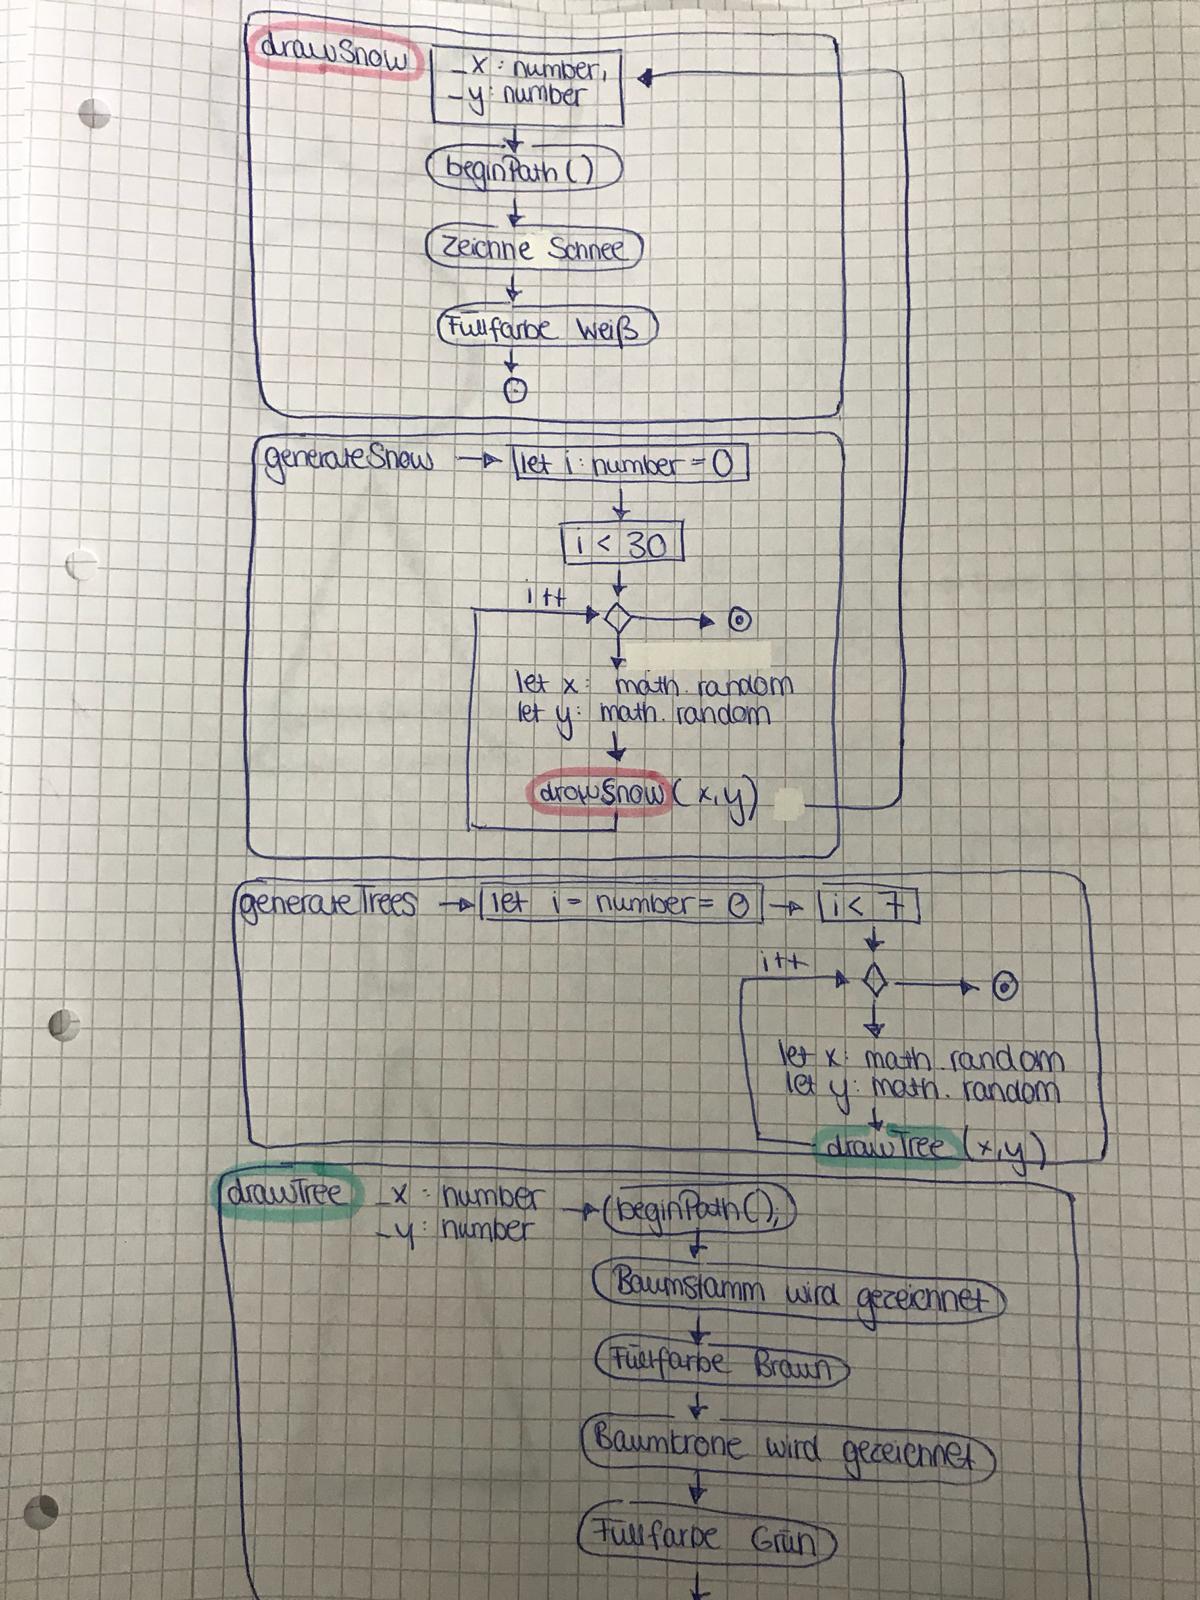 drawSnow
_x : number,
_y : number
beginPath()
Zeichne Schnee
Füllfarbe Weiß
generateSnow
let i : number = 0
i < 30
i++
let x : math.random
let y : math.random
drawSnow (x,y)
generateTrees
let i - number = 0
i < 7
i++
let x : math.random
let y : math.random
drawTree (x,y)
drawTree
_x : number
_y : number
beginPath();
Baumstamm wird gezeichnet
Füllfarbe Braun
Baumkrone wird gezeichnet
Füllfarbe Grün